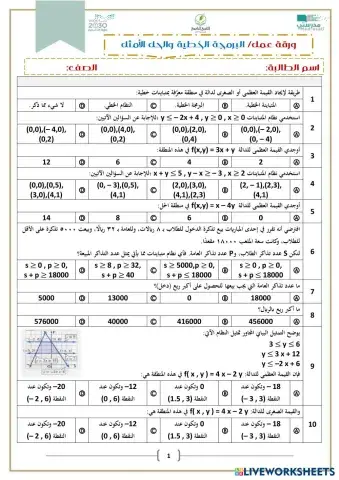 ورقة عمل/ البرمجة الخطية والحل الأمثل
اسم الطالبة: الصف:
1 طريقة لإيجاد القيمة العظمى أو الصغرى لدالة في منطقة معرّفة بمتباينات خطية:
A المتباينة الخطية. B البرمجة الخطية. C النظام الخطي. D لا شيء مما ذكر.
استخدمي نظام المتباينات y ≤ – 2x + 4 , y ≥ 0 , x ≥ 0 للإجابة عن السؤالين الآتيين:
2
A (0,0),(– 2,0), (0, – 4) B (0,0),(2,0), (0,4) C (0,0),(4,0), (0,2) D (0,0),(– 4,0), (0,2)
3 أوجدي القيمة العظمى للدالة f(x,y) = 3x + y في هذه المنطقة:
A 2 B 4 C 6 D 12
استخدمي نظام المتباينات x + y ≤ 5 , y – x ≥ – 3 , x ≥ 2 للإجابة عن السؤالين الآتيين:
4
A (2, – 1),(2,3), (4,1) B (2,0),(3,0), (4,1) C (0, – 3),(0,5), (4,1) D (0,0),(0,5), (3,0),(4,1)
5 أوجدي القيمة العظمى للدالة f(x,y) = x – 4y في منطقة الحل:
A 0 B 6 C 8 D 14
افترضي أنه تقرر في إحدى المباريات بيع تذكرة الدخول للطلاب بـ ٨ ريالات، وللعامة بـ ٣٢ ريالاً، وبيعت ٥٠٠٠ تذكرة على الأقل للطلاب، وكانت سعة الملعب ١٨٠٠٠ مقعداً.
6 لتكن S عدد تذاكر الطلاب، وP عدد تذاكر العامة. فأي نظام متباينات مما يأتي يمثل عدد التذاكر المبيعة؟
A s ≥ 0 , p ≥ 0, s + p ≤ 18000 B s ≥ 5000,p ≥ 0, s + p ≤ 18000 C s ≥ 8 , p ≥ 32, s + p ≤ 40 D s ≥ 0 , p ≥ 0, s + p ≥ 18000
7 ما عدد تذاكر العامة التي يجب بيعها للحصول على أكبر ربح (دخل)؟
A 18000 B 0 C 13000 D 5000
8 ما أكبر ربح بالريال؟
A 456000 B 416000 C 40000 D 576000
يوضح التمثيل البياني المجاور تمثيل النظام الآتي:
3 ≤ y ≤ 6
y ≤ 3 x + 12
y ≤ –2 x + 6
9 فإن القيمة العظمى للدالة: f( x , y ) = 4 x – 2 y في هذه المنطقة هي:
A – 18 وتكون عند النقطة (3 , 3 –) B 0 وتكون عند النقطة (3 , 1.5) C –12 وتكون عند النقطة (6 , 0) D –20 وتكون عند النقطة (6 , 2 –)
10 والقيمة الصغرى للدالة: f( x , y ) = 4 x – 2 y في هذه المنطقة هي:
A – 18 وتكون عند النقطة (3 , 3 –) B 0 وتكون عند النقطة (3 , 1.5) C –12 وتكون عند النقطة (6 , 0) D –20 وتكون عند النقطة (6 , 2 –)
1
LIVEWORKSHEETS